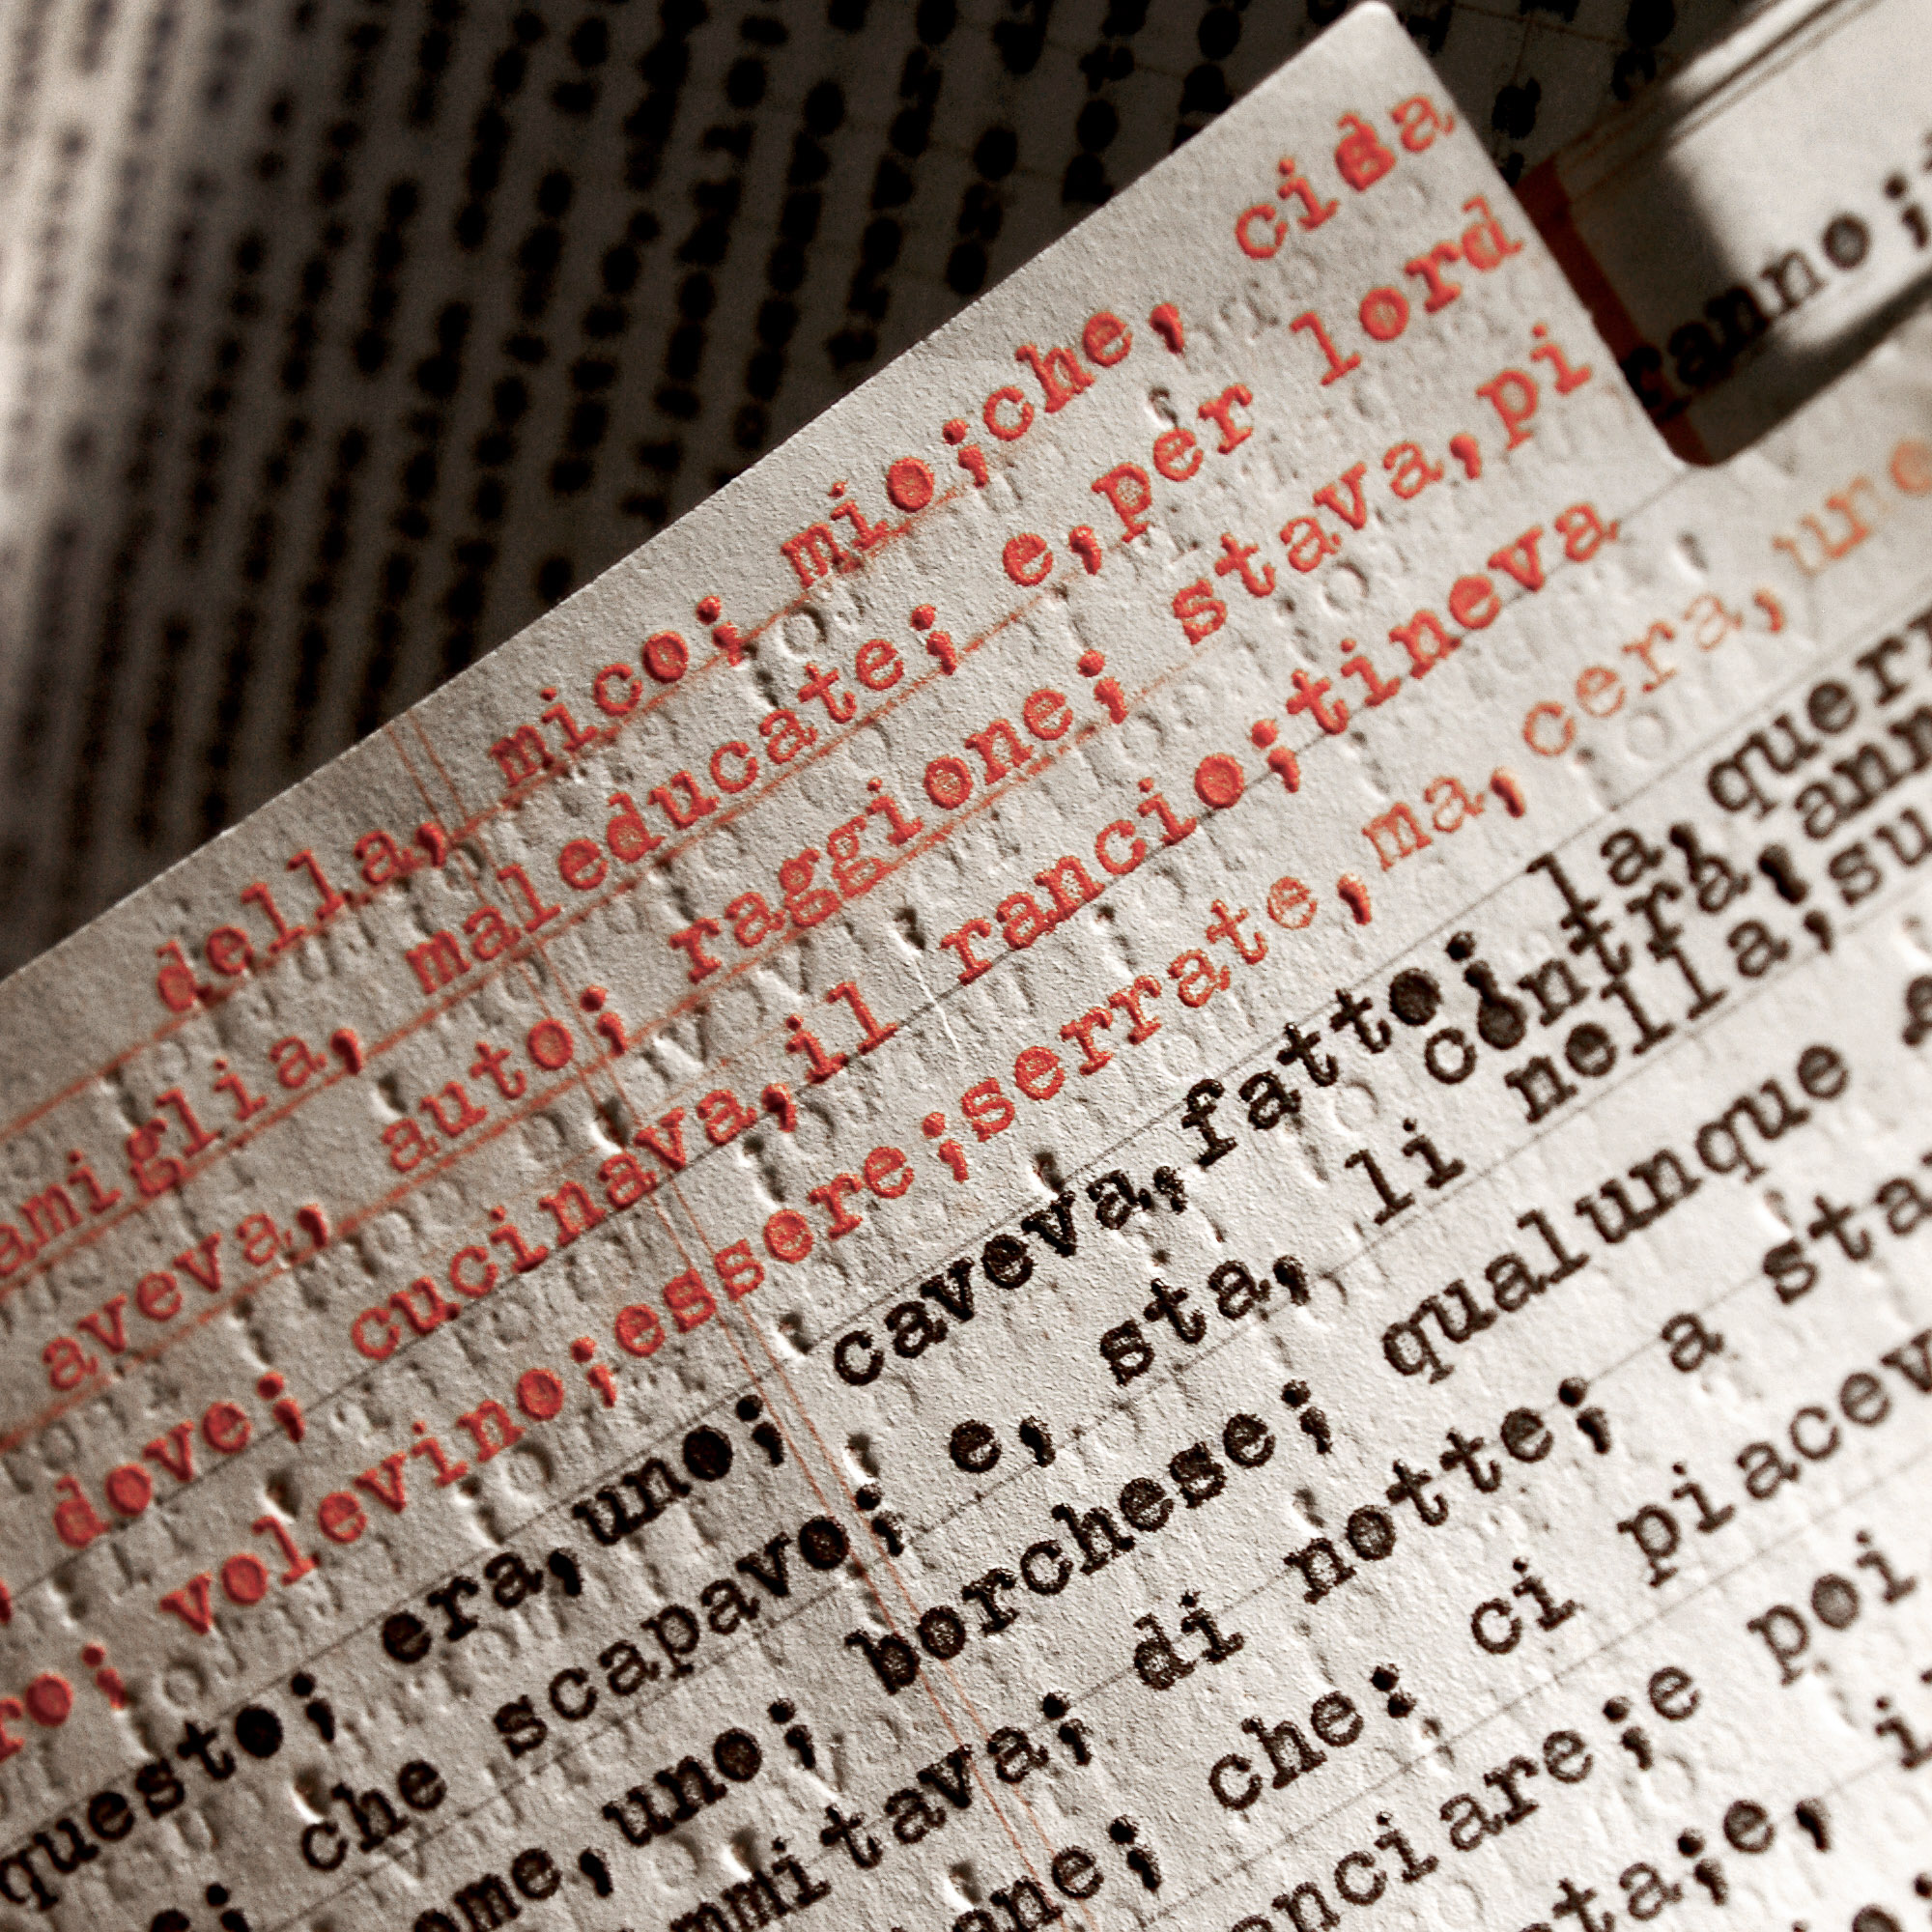 canno;
della, mico; mio;che, cida
amiglia, maleducate; e,per lord
aveva, auto; raggione; stava,pi
dove; cucinava,il rancio;tineva
ro; volevino;essere;serrate,ma,cera,uno
questo; era,uno; caveva,fatto; la, quer
contra, ann
che scapavo; e, sta, li nella,su
ome,uno; borchese; qualunque
mmitava; di notte; a sta
ane; che: ci piacev
enciare;e poi
ta;e,